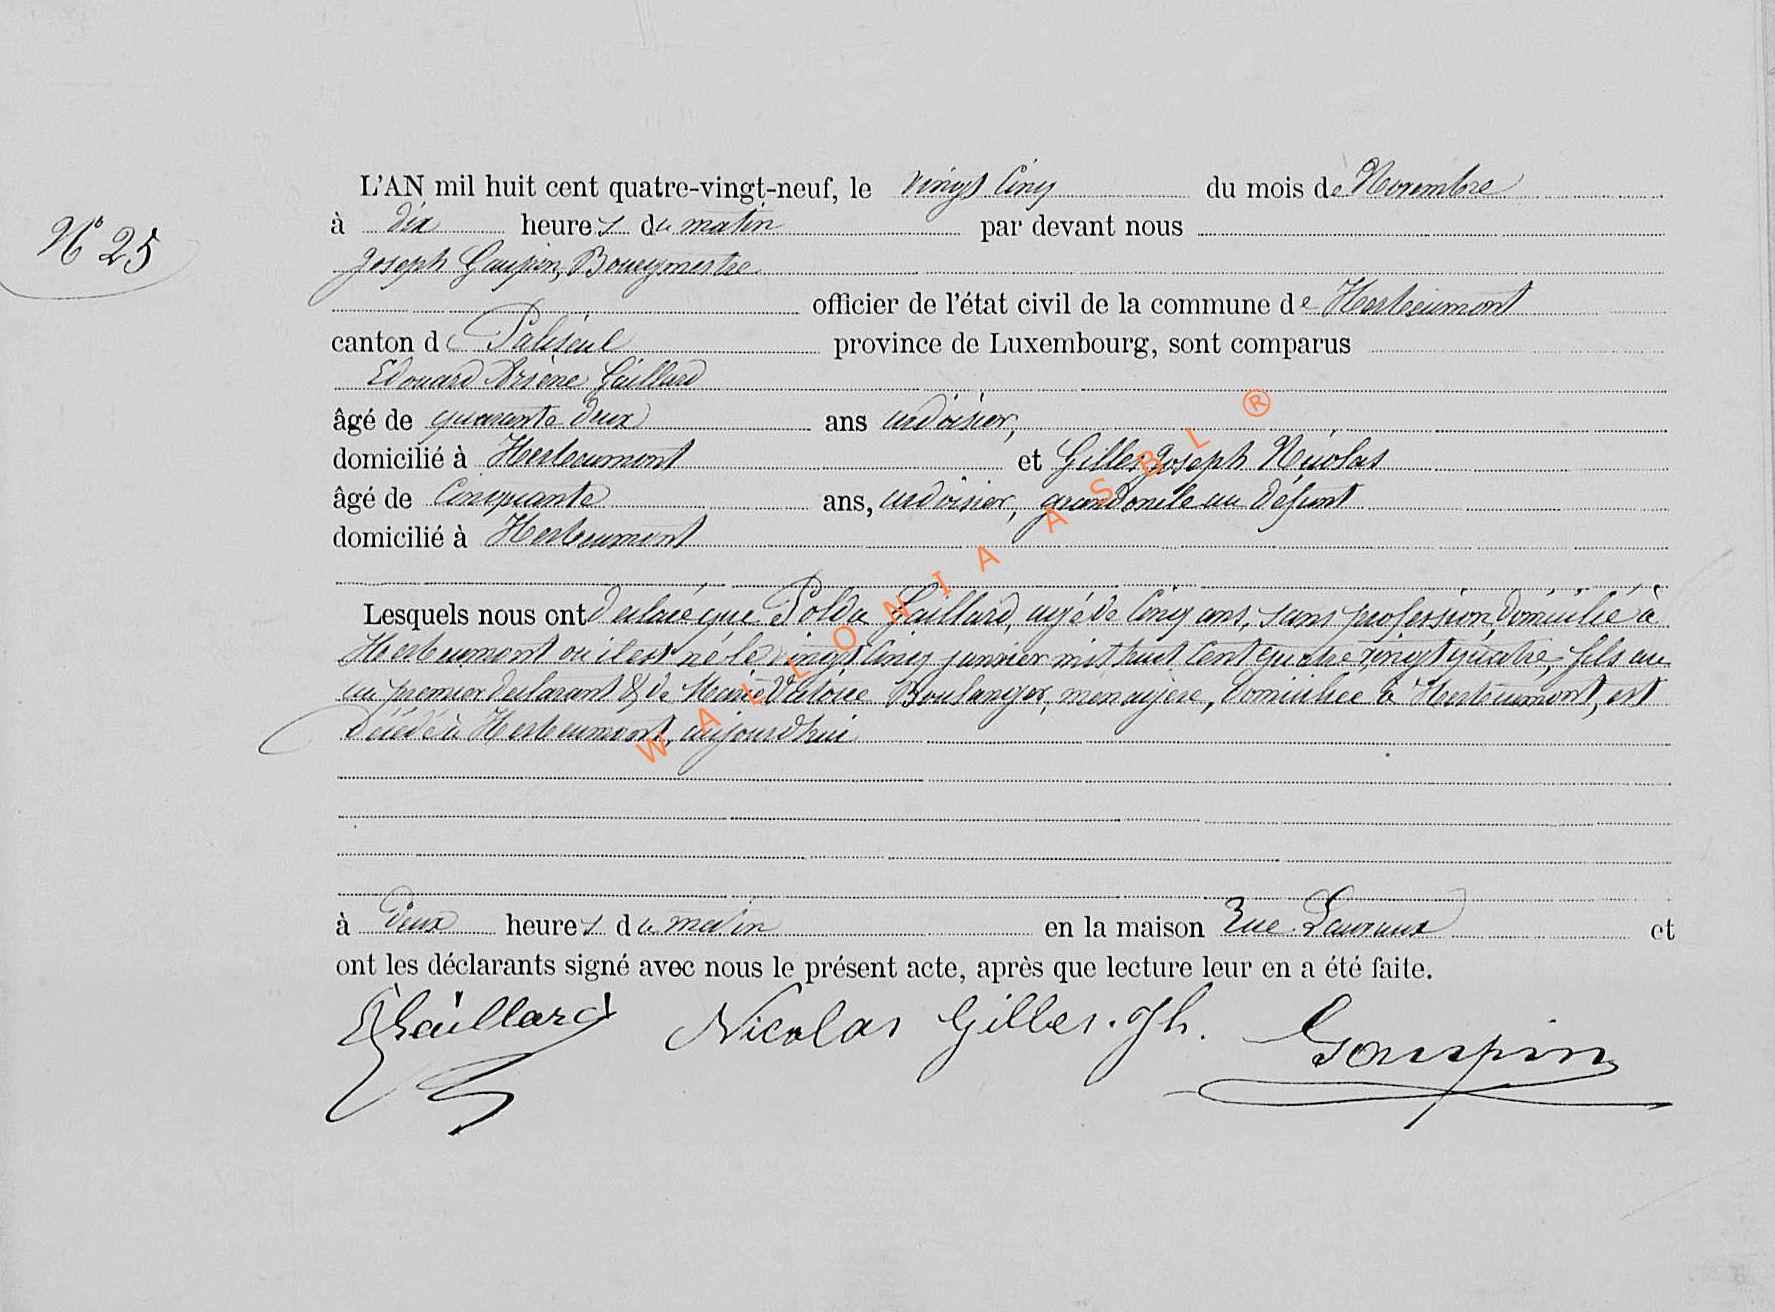 L'AN mil huit cent quatre-vingt-neuf, le vingt cinq du mois de Novembre
N° 25
à dix heures du matin par devant nous
Joseph Goupin, Bourgmestre
officier de l'état civil de la commune de Herbeumont
canton de Paliseul province de Luxembourg, sont comparus
Edouard Arsène Gaillard
âgé de quarante deux ans ardoisier,
domicilié à Herbeumont et Gilles Joseph Nicolas
âgé de Cinquante ans, ardoisier, grand oncle au défunt
domicilié à Herbeumont
Lesquels nous ont déclaré que Polda Gaillard, âgé de Cinq ans, sans profession, domicilié à
Herbeumont où il est né le vingt Cinq janvier mil huit Cent quatre vingt quatre, fils
du premier déclarant & de Marie Victoire Boulanger, ménagère, domiciliée à Herbeumont, est
décédé à Herbeumont, aujourd'hui
à deux heures du matin en la maison Rue et
ont les déclarants signé avec nous le présent acte, après que lecture leur en a été faite.
EGaillard Nicolas Gilles. Jh. Goupin
WALLONIA ASBL ®